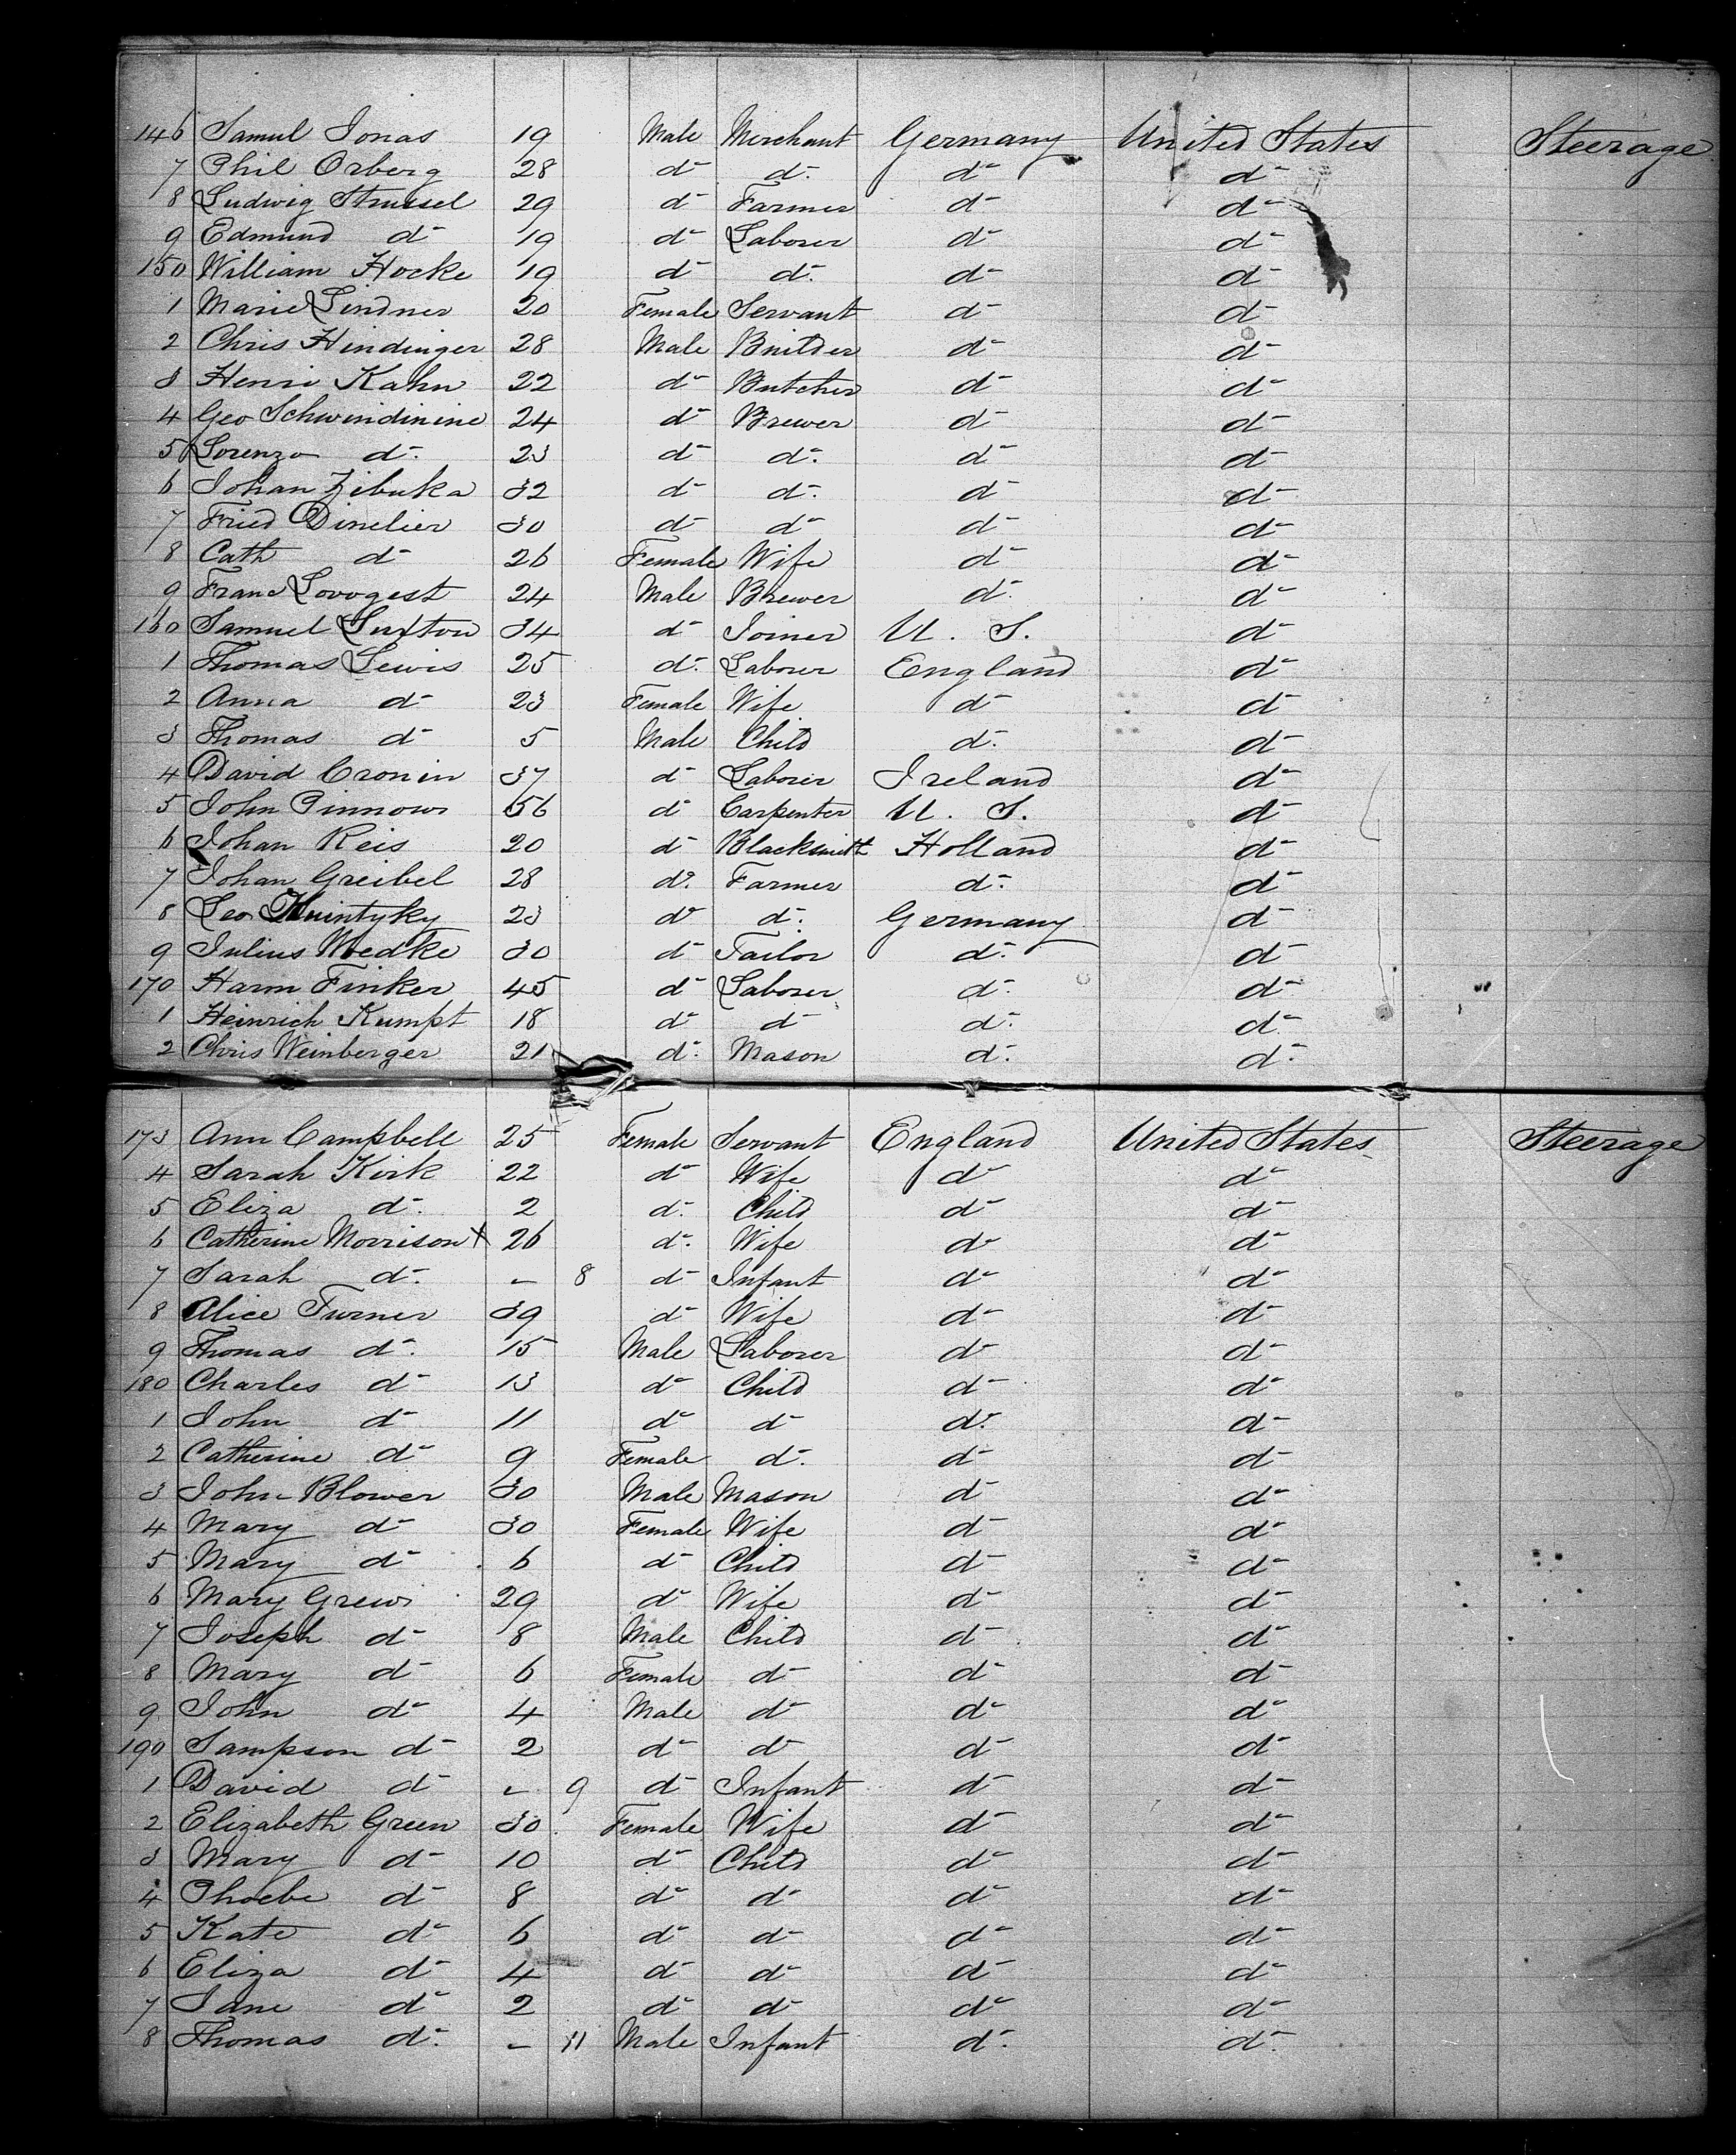 146 Samul Jonas 19 Male Merchant Germany United States Steerage
7 Phil Orberg 28 d- d- d- d-
8 Ludwig Strussel 29 d- Farmer d- d-
9 Edmund d- 19 d- Laborer d- d-
150 William Hocke 19 d- d- d- d-
1 Marie Lindner 20 Female Servant d- d-
2 Chris Hindinger 28 Male Builder d- d-
3 Henri Kahn 22 d- Butcher d- d-
4 Geo Schwindinine 24 d- Brewer d- d-
5 Lorenzo d- 23 d- d- d- d-
6 Johan Zibuka 32 d- d- d- d-
7 Fried Dinelier 30 d- d- d- d-
8 Cath d- 26 Female Wife d- d-
9 Franc Lovogest 24 Male Brewer d- d-
160 Samuel 34 d- Joiner U. S. d-
1 Thomas Lewis 25 d- Laborer England d-
2 Anna d- 23 Female Wife d- d-
3 Thomas d- 5 Male Child d- d-
4 David Cronin 37 d- Laborer Ireland d-
5 John Pinnow 56 d- Carpenter U. S. d-
6 Johan Reis 20 d- Blacksmith Holland d-
7 Johan Greibel 28 d- Farmer d- d-
8 Leo 23 d- d- Germany d-
9 Julius Medke 30 d- Tailor d- d-
170 Harm Finker 45 d- Laborer d- d-
1 Heinrich Kumpt 18 d- d- d- d-
2 Chris Weinberger 21 d- Mason d- d-
173 Ann Campbell 25 Female Servant England United States Steerage
4 Sarah Kirk 22 d- Wife d- d-
5 Eliza d- 2 d- Child d- d-
6 Catherine Morrison x 26 d- Wife d- d-
7 Sarah d- - 8 d- Infant d- d-
8 Alice Turner 39 d- Wife d- d-
9 Thomas d- 15 Male Laborer d- d-
180 Charles d- 13 d- Child d- d-
1 John d- 11 d- d- d- d-
2 Catherine d- 9 Female d- d- d-
3 John Blower 30 Male Mason d- d-
4 Mary d- 30 Female Wife d- d-
5 Mary d- 6 d- Child d- d-
6 Mary Grew 29 d- Wife d- d-
7 Joseph d- 8 Male Child d- d-
8 Mary d- 6 Female d- d- d-
9 John d- 4 Male d- d- d-
190 Sampson d- 2 d- d- d- d-
1 David d- - 9 d- Infant d- d-
2 Elizabeth Green 30 Female Wife d- d-
3 Mary d- 10 d- Child d- d-
4 Phoebe d- 8 d- d- d- d-
5 Kate d- 6 d- d- d- d-
6 Eliza d- 4 d- d- d- d-
7 Jane d- 2 d- d- d- d-
8 Thomas d- - 11 Male Infant d- d-